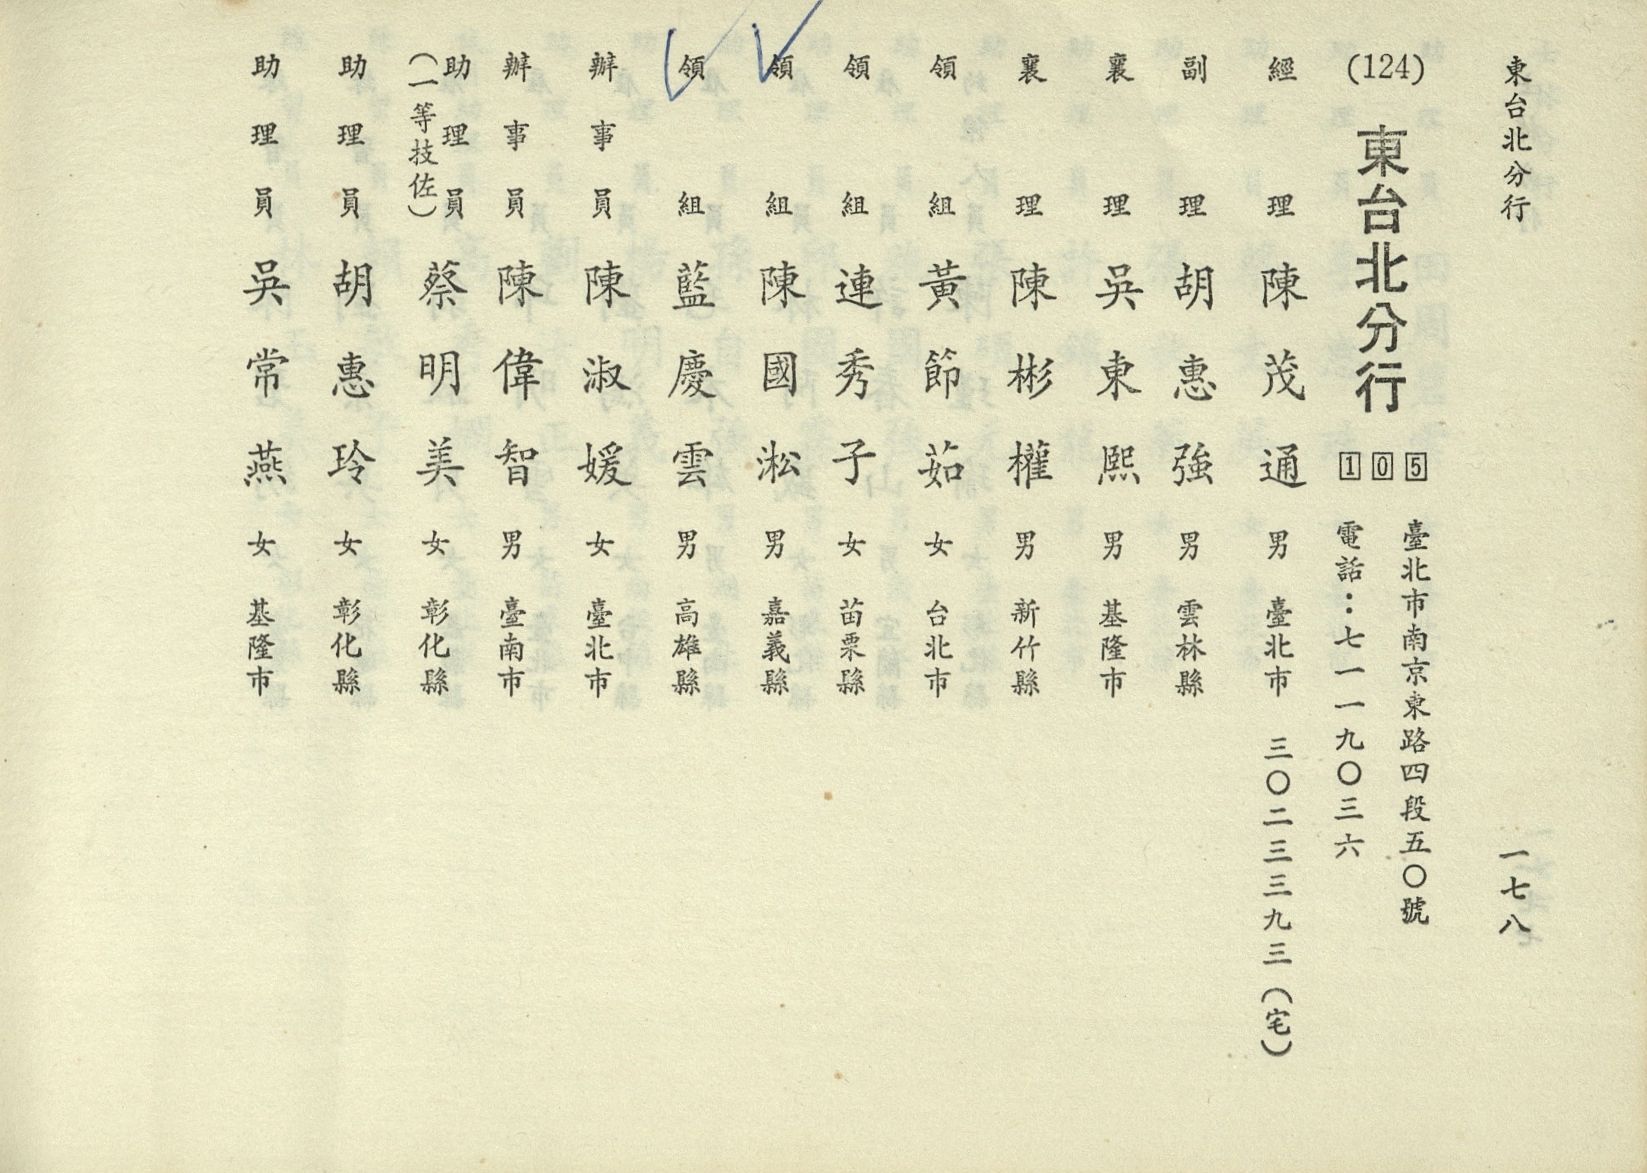 東台北分行
一七八
(124) 東台北分行 105
臺北市南京東路四段五〇號
電話：七一一九〇三六
經理 陳茂通 男 臺北市 三〇二三三九三（宅）
副理 胡惠強 男 雲林縣
襄理 吳東熙 男 基隆市
襄理 陳彬權 男 新竹縣
領組 黃節茹 女 台北市
領組 連秀子 女 苗栗縣
領組 陳國淞 男 嘉義縣
領組 藍慶雲 男 高雄縣
辦事員 陳淑媛 女 臺北市
辦事員 陳偉智 男 臺南市
助理員（一等技佐） 蔡明美 女 彰化縣
助理員 胡惠玲 女 彰化縣
助理員 吳常燕 女 基隆市